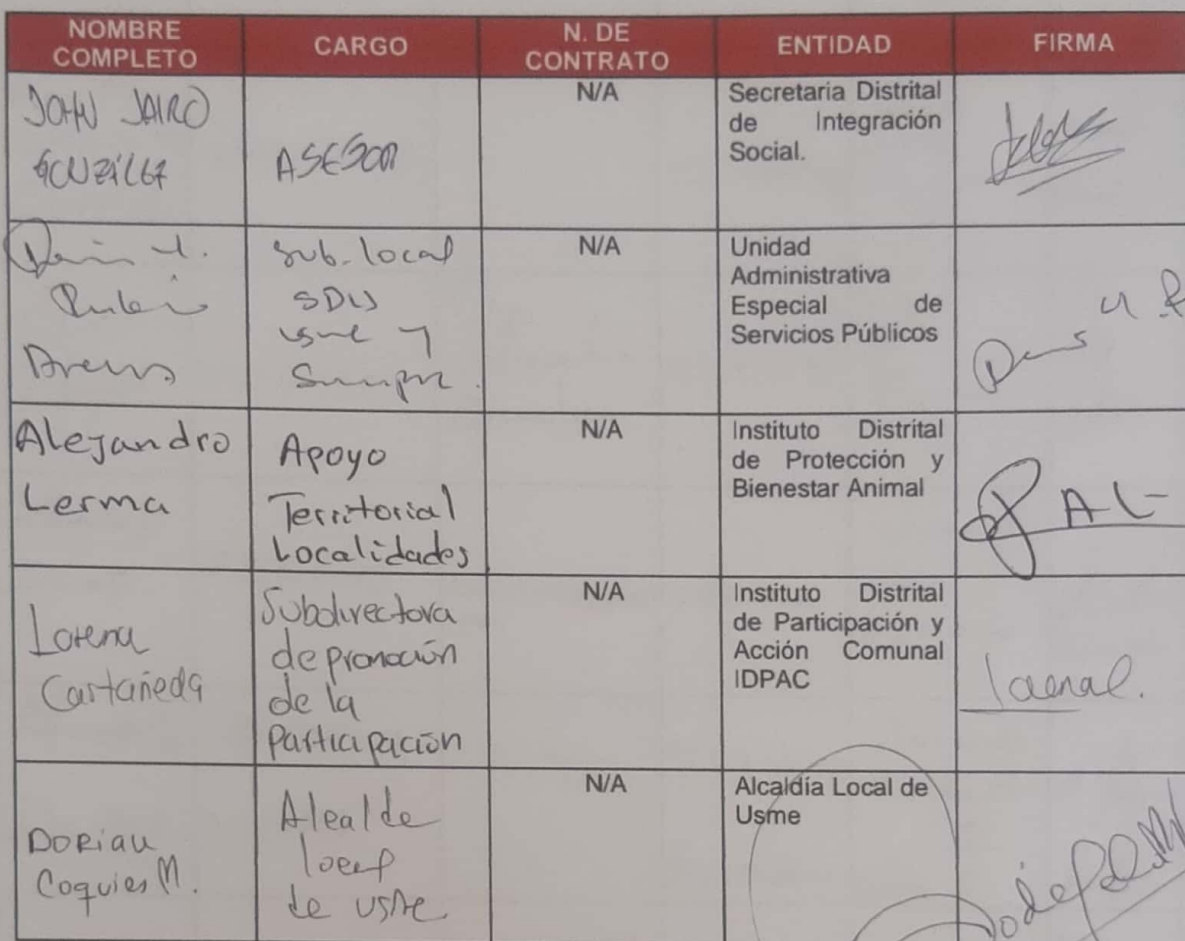 NOMBRE COMPLETO CARGO N. DE CONTRATO ENTIDAD FIRMA
JOHN JAIRO
GONZÁLEZ
ASESOR
N/A
Secretaria Distrital
de Integración
Social.
Sub. local
Usme y
N/A
Unidad
Administrativa
Especial de
Servicios Públicos
Alejandro
Lerma
Apoyo
Territorial
Localidades
N/A
Instituto Distrital
de Protección y
Bienestar Animal
AL
Lorena
Castañeda
Subdirectora
de promoción
de la
Participación
N/A
Instituto Distrital
de Participación y
Acción Comunal
IDPAC
Dorian
Coquies M.
Alcalde
local
de usme
N/A
Alcaldía Local de
Usme